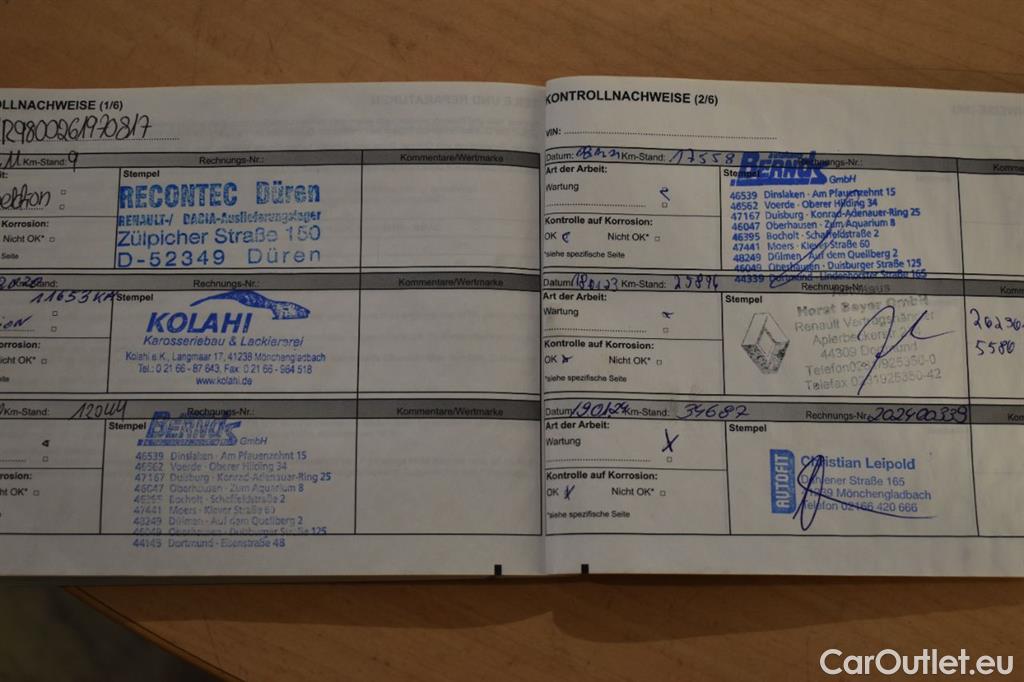 OLLNACHWEISE (1/6)
R9800261970817
Km-Stand: 9
Rechnungs-Nr.:
Kommentare/Wertmarke
Stempel
RECONTEC Düren
RENAULT-/ DACIA-Auslieferungslager
Zülpicher Straße 150
D-52349 Düren
Korrosion:
Nicht OK*
Seite
11653 KM
Rechnungs-Nr.:
Kommentare/Wertmarke
Stempel
KOLAHI
Karosseriebau & Lackiererei
Kolahi e.K., Langmaar 17, 41238 Mönchengladbach
Tel.: 0 21 66 - 87 643, Fax: 0 21 66 - 984 518
www.kolahi.de
orrosion:
Nicht OK*
Seite
Km-Stand: 12044
Rechnungs-Nr.:
Kommentare/Wertmarke
Stempel
BERNDS GmbH
46539 Dinslaken · Am Pfauenzehnt 15
46562 Voerde · Oberer Hilding 34
47167 Duisburg · Konrad-Adenauer-Ring 25
46047 Oberhausen · Zum Aquarium 8
46395 Bocholt · Schaffeldstraße 2
47441 Moers · Klever Straße 60
48249 Dülmen · Auf dem Quellberg 2
46049 Oberhausen · Duisburger Straße 125
44149 Dortmund · Eisenstraße 48
rosion:
Nicht OK*
Seite
KONTROLLNACHWEISE (2/6)
VIN:
Datum:
Km-Stand: 17558
Rechnungs-Nr.:
Komme
Art der Arbeit:
Wartung
Kontrolle auf Korrosion:
OK
Nicht OK*
*siehe spezifische Seite
Stempel
BERNDS GmbH
46539 Dinslaken · Am Pfauenzehnt 15
46562 Voerde · Oberer Hilding 34
47167 Duisburg · Konrad-Adenauer-Ring 25
46047 Oberhausen · Zum Aquarium 8
46395 Bocholt · Schaffeldstraße 2
47441 Moers · Klever Straße 60
48249 Dülmen · Auf dem Quellberg 2
46049 Oberhausen · Duisburger Straße 125
44339 Dortmund · Lindenhorster Straße 165
Datum: 180123
Km-Stand: 25896
Rechnungs-Nr.:
Komm
Art der Arbeit:
Wartung
Kontrolle auf Korrosion:
OK
Nicht OK*
*siehe spezifische Seite
Stempel
Horst Beyer GmbH
Renault Vertragshändler
Aplerbeckerstr.
44309 Dortmund
Telefon 0231/925350-0
Telefax 0231/925350-42
5586
Datum: 190124
Km-Stand: 34687
Rechnungs-Nr.: 202400339
Kom
Art der Arbeit:
Wartung X
Kontrolle auf Korrosion:
OK X
Nicht OK*
*siehe spezifische Seite
Stempel
AUTOFIT
Christian Leipold
Straße 165
Mönchengladbach
Telefon 02166 420 666
CarOutlet.eu